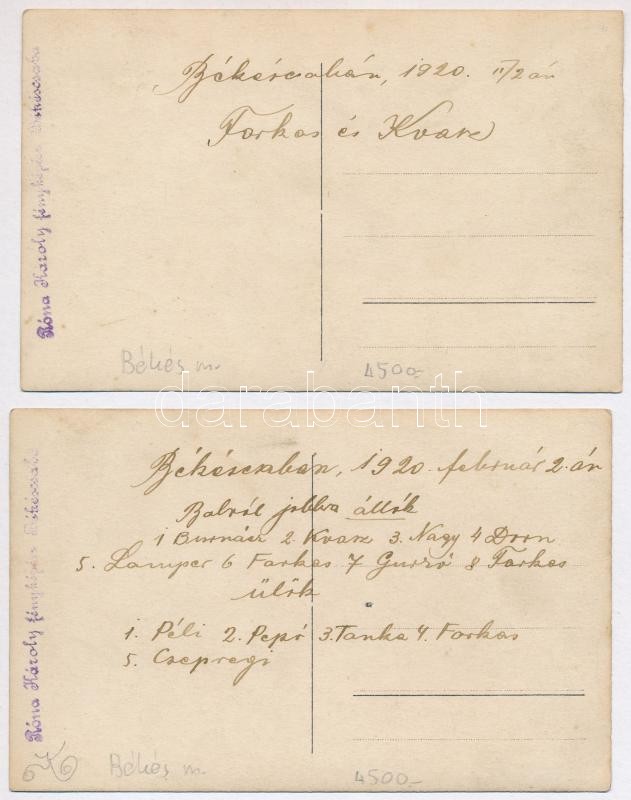 Békéscsabán, 1920. II/2 án
Farkas és Kvasz
Róna Károly fényképész Békéscsaba
Békés m.
4500.-
darabanth
Békéscsaban, 1920. február 2.-án
Balról jobbra állók
1 Burnácz 2. Kvasz 3. Nagy 4 Dorn
5. Lamper 6 Farkas 7 Gurzó 8 Farkas
ülők
1. Péli 2. Pepó 3. Tanka 4. Farkas
5. Csepregi
Róna Károly fényképész Békéscsaba
Békés m.
4500.-